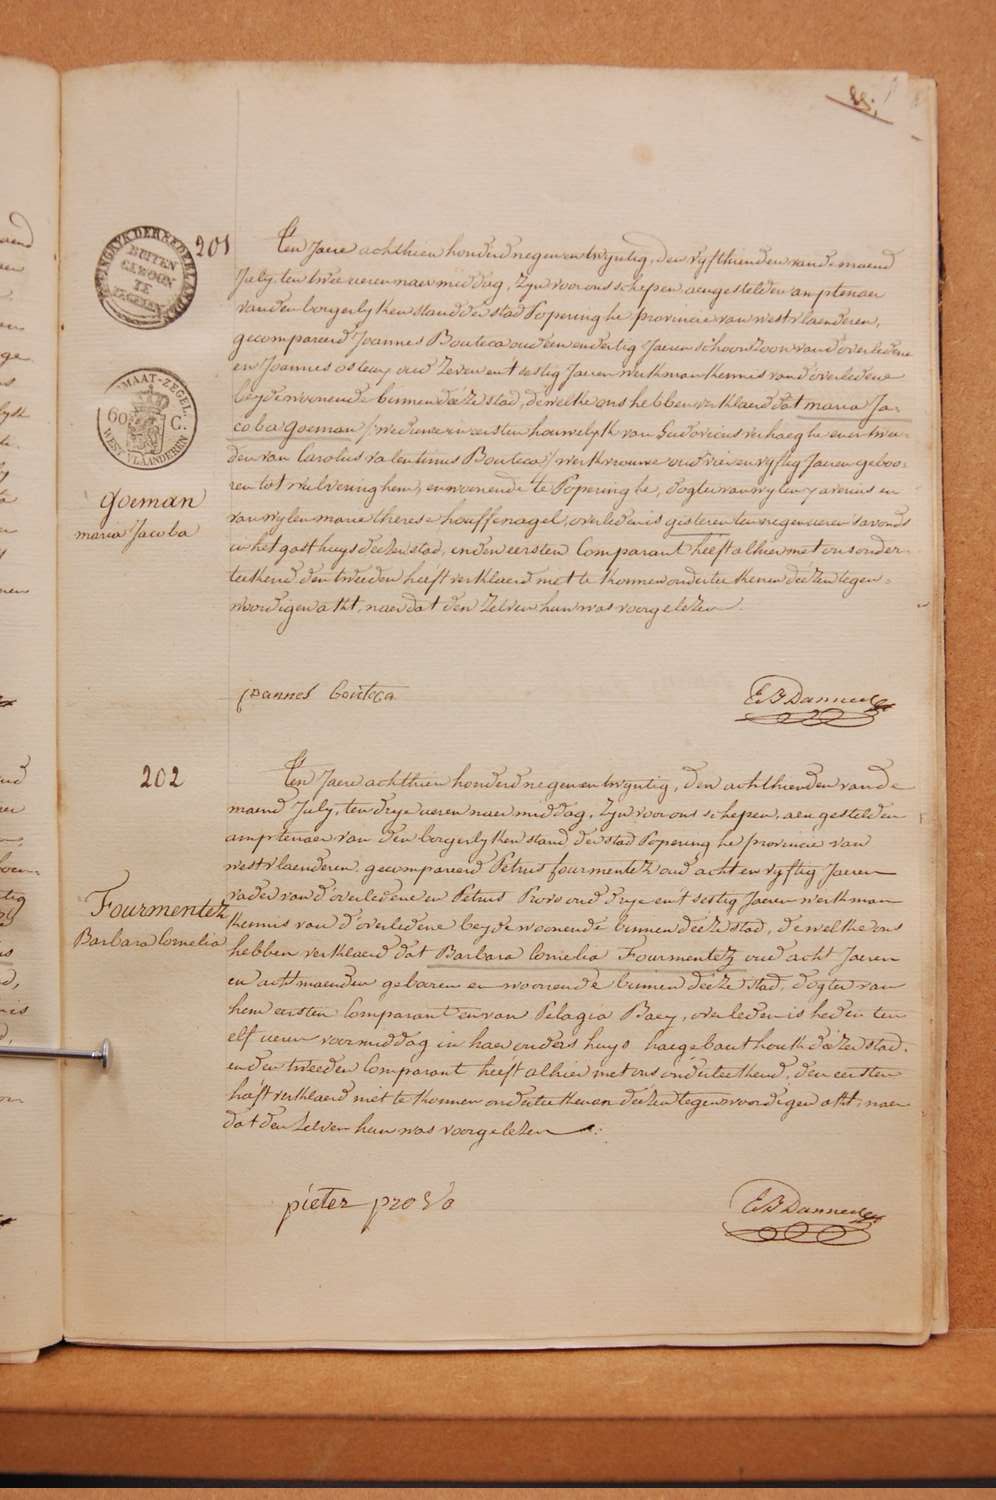 88.
KONINGRYK DER NEDERLANDEN
BUITEN
GEWOON
TE
ZEGELEN
201
MAAT-ZEGEL.
60 C:
WEST VLAANDEREN
goeman
maria Jacoba
Ten Jaere achthien honderd negen en twyntig, den vyfthienden van de maend
July, ten twee ueren naer middag, Zyn voor ons schepen aengestelden amptenaer
van den borgerlyken stand der stad Poperinghe provincie van westvlaenderen,
gecompareerd Joannes Bouteca oud een en dertig Jaeren schoonzoon van d'overledene
en Joannes osteux oud Zeven en t'sestig Jaeren werkman kennis van d'overledene
beyde woonende binnen deéze stad, dewelke ons hebben verklaerd dat maria Ja-
coba goeman /: weduwe in eersten houwelyk van Ludovicus verhaeghe en en twee-
den van Carolus valentinus Bouteca :/ werkvrouwe oud vier en vyftig Jaeren geboo-
ren tot wulveringhem, en woonende te Poperinghe, dogter van wylen xaverius en
van wylen marie therese houffenagel, overleden is gisteren ten negen ueren s'avonds
in het gasthuys deézer stad, en den eersten Comparant heéft alhier met ons onder-
teekend den tweeden heéft verklaerd niet te konnen onderteekenen deézen tegen-
woordigen akt, naer dat den Zelven hun was voorgelezen.
joannes bouteca
E B Danneel
202
Fourmentez
Barbara Cornelia
Ten Jaere achthien honderd negen en twyntig, den achthienden van de
maend July, ten drye ueren naer middag, Zyn voor ons schepen, aengestelden
amptenaer van den borgerlyken stand der stad Poperinghe provincie van
westvlaenderen, gecompareerd Petrus fourmentez oud acht en vyftig Jaeren
vader van d'overledene en Petrus Provo oud drye en t'sestig Jaeren werkman
kennis van d'overledene beyde woonende binnen deéze stad, dewelke ons
hebben verklaerd dat Barbara Cornelia Fourmentez oud acht Jaeren
en acht maenden geboren en woonende binnen deéze stad, dogter van
hem eersten Comparant en van Pelagia Baey, overleden is heden ten
elf ueren voormiddag in haer ouders huys haegebaerthoek deézer stad,
en den tweeden Comparant heéft alhier met ons onderteekend, den eersten
heéft verklaerd niet te konnen onderteekenen deézen tegenwoordigen akt, naer
dat den Zelven hun was voorgelezen.
pieter provo
E B Danneel